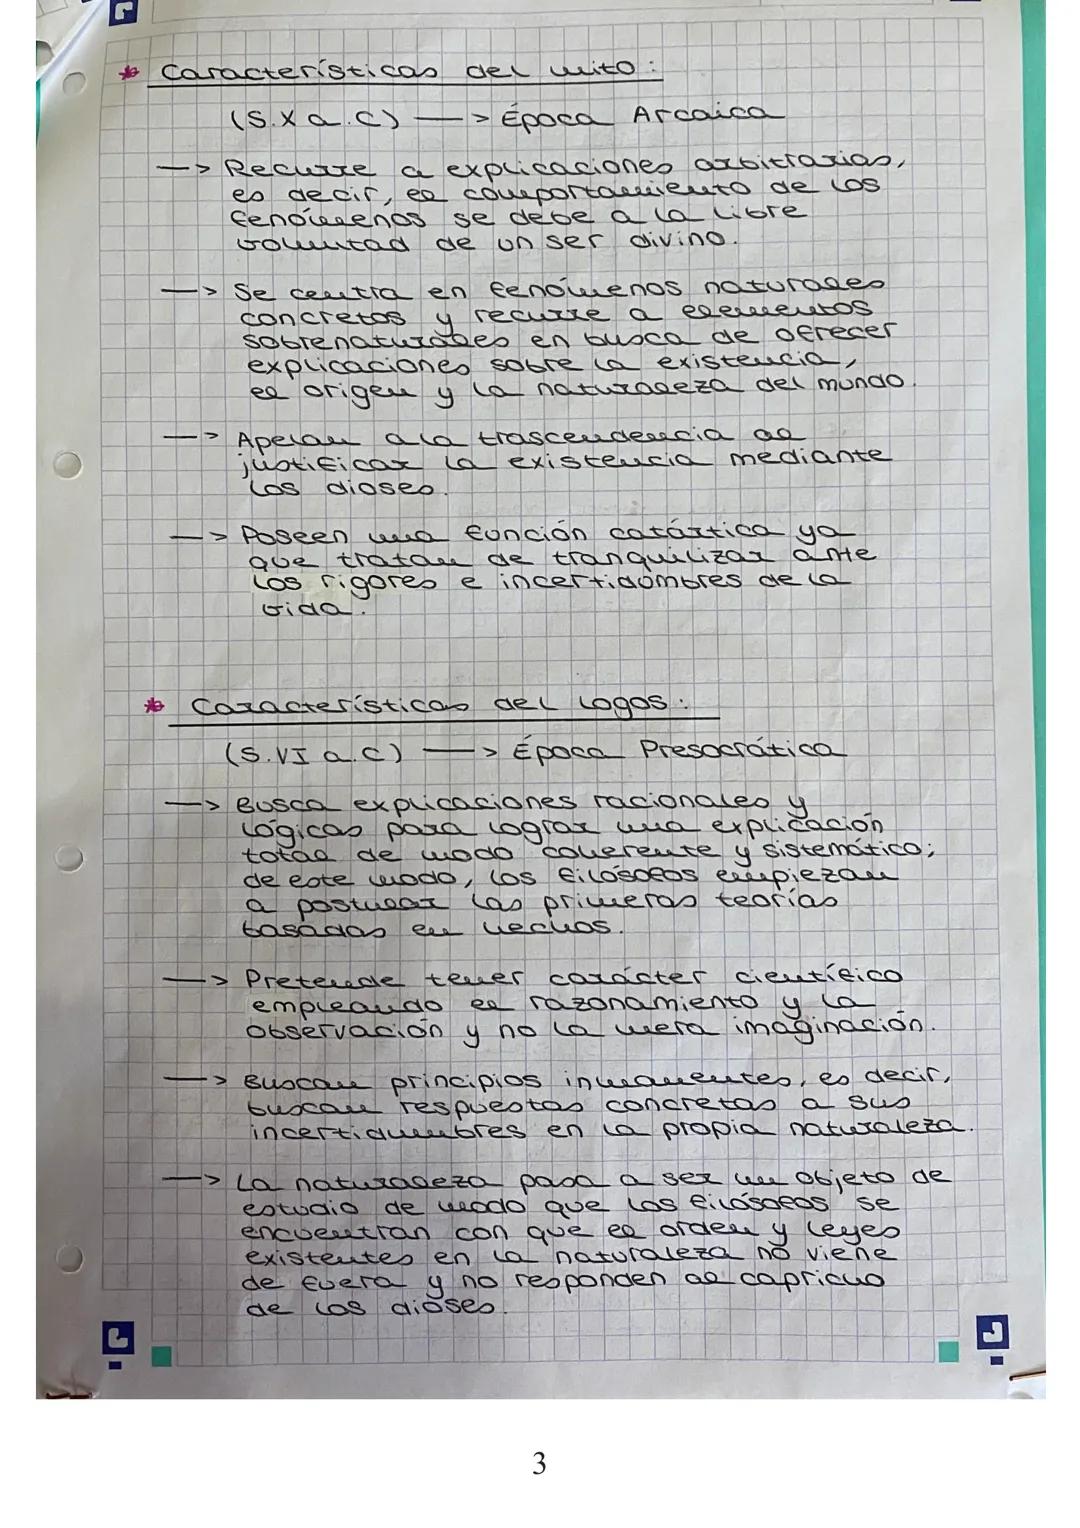 * Características del mito:
(S.X a.C) —> Época Arcaica
—> Recurre a explicaciones arbitrarias,
es decir, el comportamiento de los
fenómenos se debe a la libre
voluntad de un ser divino.
—> Se centra en fenómenos naturales
concretos y recurre a elementos
sobrenaturales en busca de ofrecer
explicaciones sobre la existencia,
el origen y la naturaleza del mundo.
—> Apelan a la trascendencia al
justificar la existencia mediante
los dioses.
—> Poseen una función catártica ya
que tratan de tranquilizar ante
los rigores e incertidumbres de la
vida.
* Características del logos:
(S.VI a.C) —> Época Presocrática
—> Busca explicaciones racionales y
lógicas para lograr una explicación
total de modo coherente y sistemático;
de este modo, los filósofos empiezan
a postular las primeras teorías
basadas en hechos.
—> Pretende tener carácter científico
empleando el razonamiento y la
observación y no la mera imaginación.
—> Buscan principios inmanentes, es decir,
buscan respuestas concretas a sus
incertidumbres en la propia naturaleza.
—> La naturaleza pasa a ser un objeto de
estudio de modo que los filósofos se
encuentran con que el orden y leyes
existentes en la naturaleza no viene
de fuera y no responden al capricho
de los dioses.
3